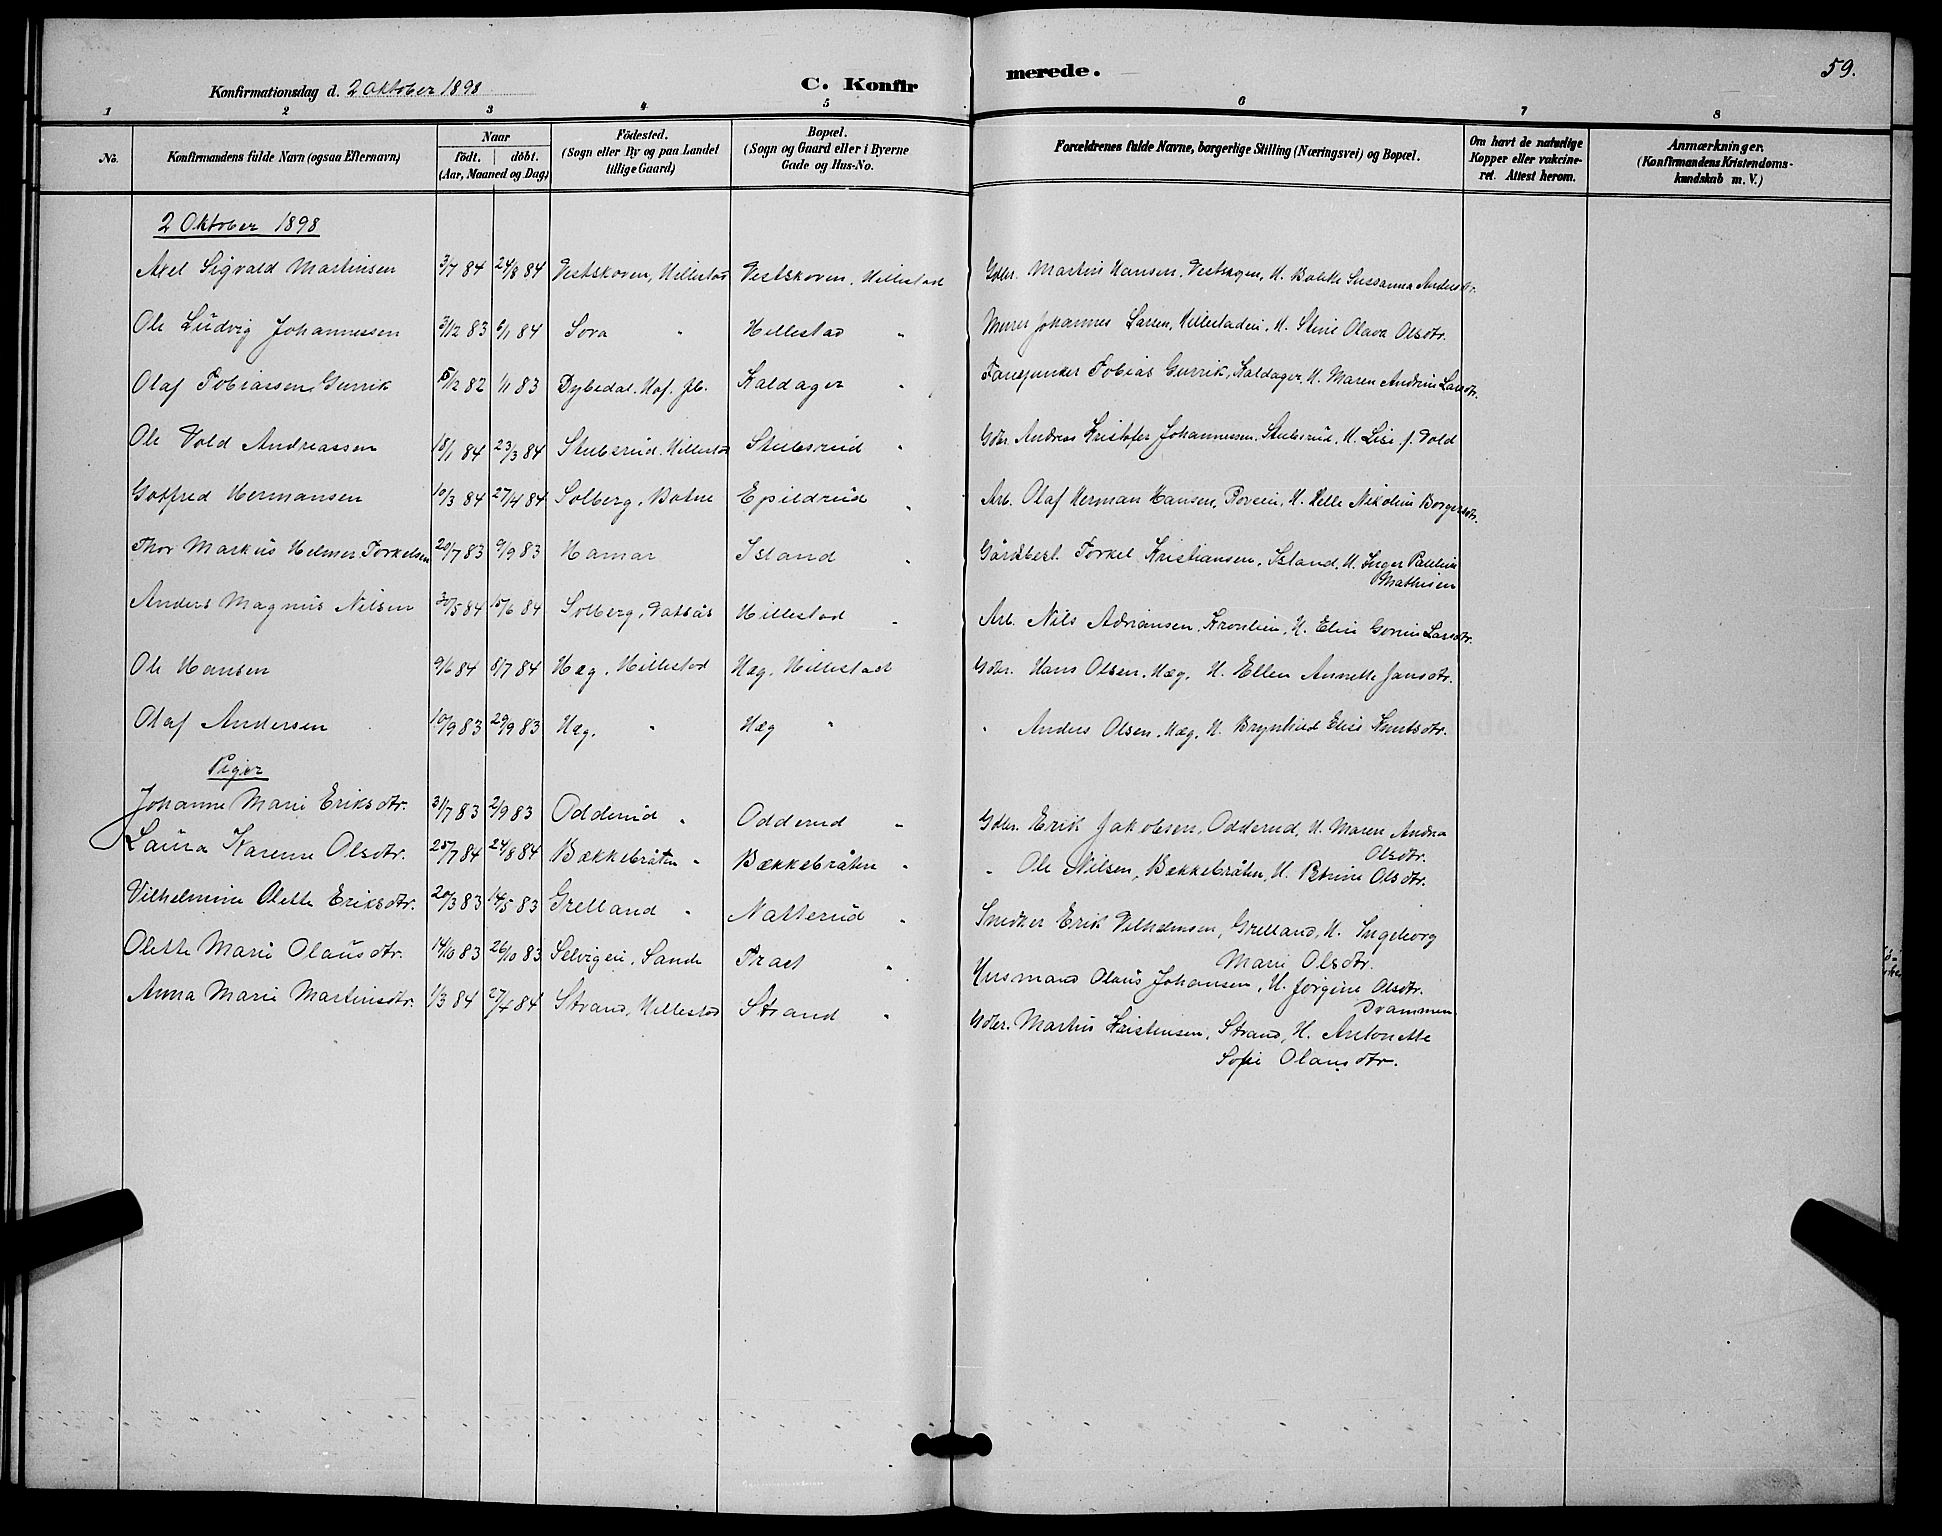 59.
Konfirmationsdag d. 2 Oktober 1898
C. Konfirmerede.
1 2 3 4 5 6 7 8
No.
Konfirmandens fulde Navn (ogsaa Efternavn)
Naar
født. døbt.
(Aar, Maaned og Dag)
Födested.
(Sogn eller By og paa Landet
tillige Gaard)
Bopæl.
(Sogn og Gaard eller i Byerne
Gade og Hus-No.
Forældrenes fulde Navne, borgerlige Stilling (Næringsvei) og Bopæl.
Om havt de naturlige
Kopper eller vakcine-
ret. Attest herom.
Anmærkninger.
(Konfirmandens Kristendoms-
kundskab m. V.)
2 Oktober 1898
Axel Sigvald Martinsen 3/7 84 24/8 84 Vestskoven, Hillestad Vestskoven, Hillestad Gdbr. Martin Hansen, H. Bolette Sussanna Andersdtr.
Ole Ludvig Johannessen 3/12 83 6/1 84 Sora " Hillestad " Murer Johannes Larsen, Hillestadeie, H. Stine Olava Olsdtr.
Olaf Tobiassen Gurrik 5/12 82 1/1 83 Dybedal, Haf. Kaldager " Fanejunker Tobias Gurrik, Kaldager, H. Maren Andrine Larsdtr.
Ole Vold Andreassen 18/1 84 23/3 84 Stubsrud, Hillestad Stubsrud " Gdbr. Andreas Kristofer Johannessen, Stubsrud, H. Lise f. Vold
Gotfred Hermansen 10/3 84 27/4 84 Solberg, Botne Epildrud " Arb. Olaf Herman Hansen, H. Helle Nikoline Borgersdtr.
Thor Markus Helmer Torkelsen 20/7 83 9/9 83 Hamar Island " Gårdbest. Torkel Kristiansen, Island, H. Inger Pauline
Mathisen
Anders Magnus Nilsen 30/5 84 15/6 84 Solberg, Vatsås Hillestad " Arb. Nils Adriansen, H. Elin Gorine Larsdtr.
Ole Hansen 9/6 84 8/7 84 Hæg, Hillestad Hæg, Hillestad Gdbr. Hans Olsen, Hæg, H. Ellen Annette Jansdtr.
Olaf Andersen 10/9 83 29/9 83 Hæg, " Hæg " " Anders Olsen, Hæg, H. Brynhild Elise Knutsdtr.
Piger
Johanne Marie Eriksdtr. 31/7 83 2/9 83 Odderud " Odderud " Gdbr. Erik Jakobsen, Odderud, H. Maren Andrea
Olsdtr.
Laura Karene Olsdtr. 25/7 84 24/8 84 Bækkebråten " Bækkebråten " " Ole Nilsen, Bækkebråten, H. Petrine Olsdtr.
Vilhelmine Olette Eriksdtr. 20/3 83 14/5 83 Grelland " Natterud " Snedker Erik Vilhelmsen, Grelland, H. Ingeborg
Marie Olsdtr.
Olette Marie Olausdtr. 14/10 83 26/10 83 Selvigeie, Sande " Husmand Olaus Johansen, H. Jørgine Olsdtr.
Drammen
Anna Marie Martinsdtr. 1/3 84 27/4 84 Strand, Hillestad Strand " Gdbr. Martin Kristensen, Strand, H. Antonette
Sofie Olausdtr.